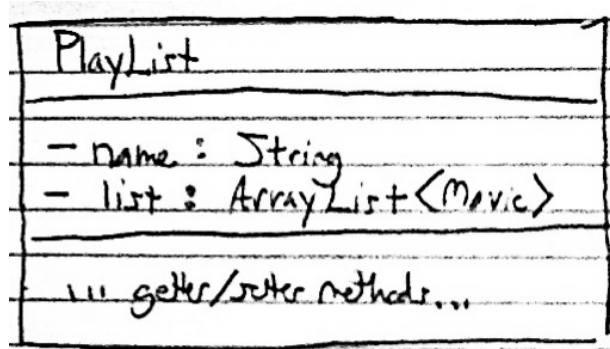 PlayList
- name : String
- list : ArrayList<Movie>
... getter/setter methods...